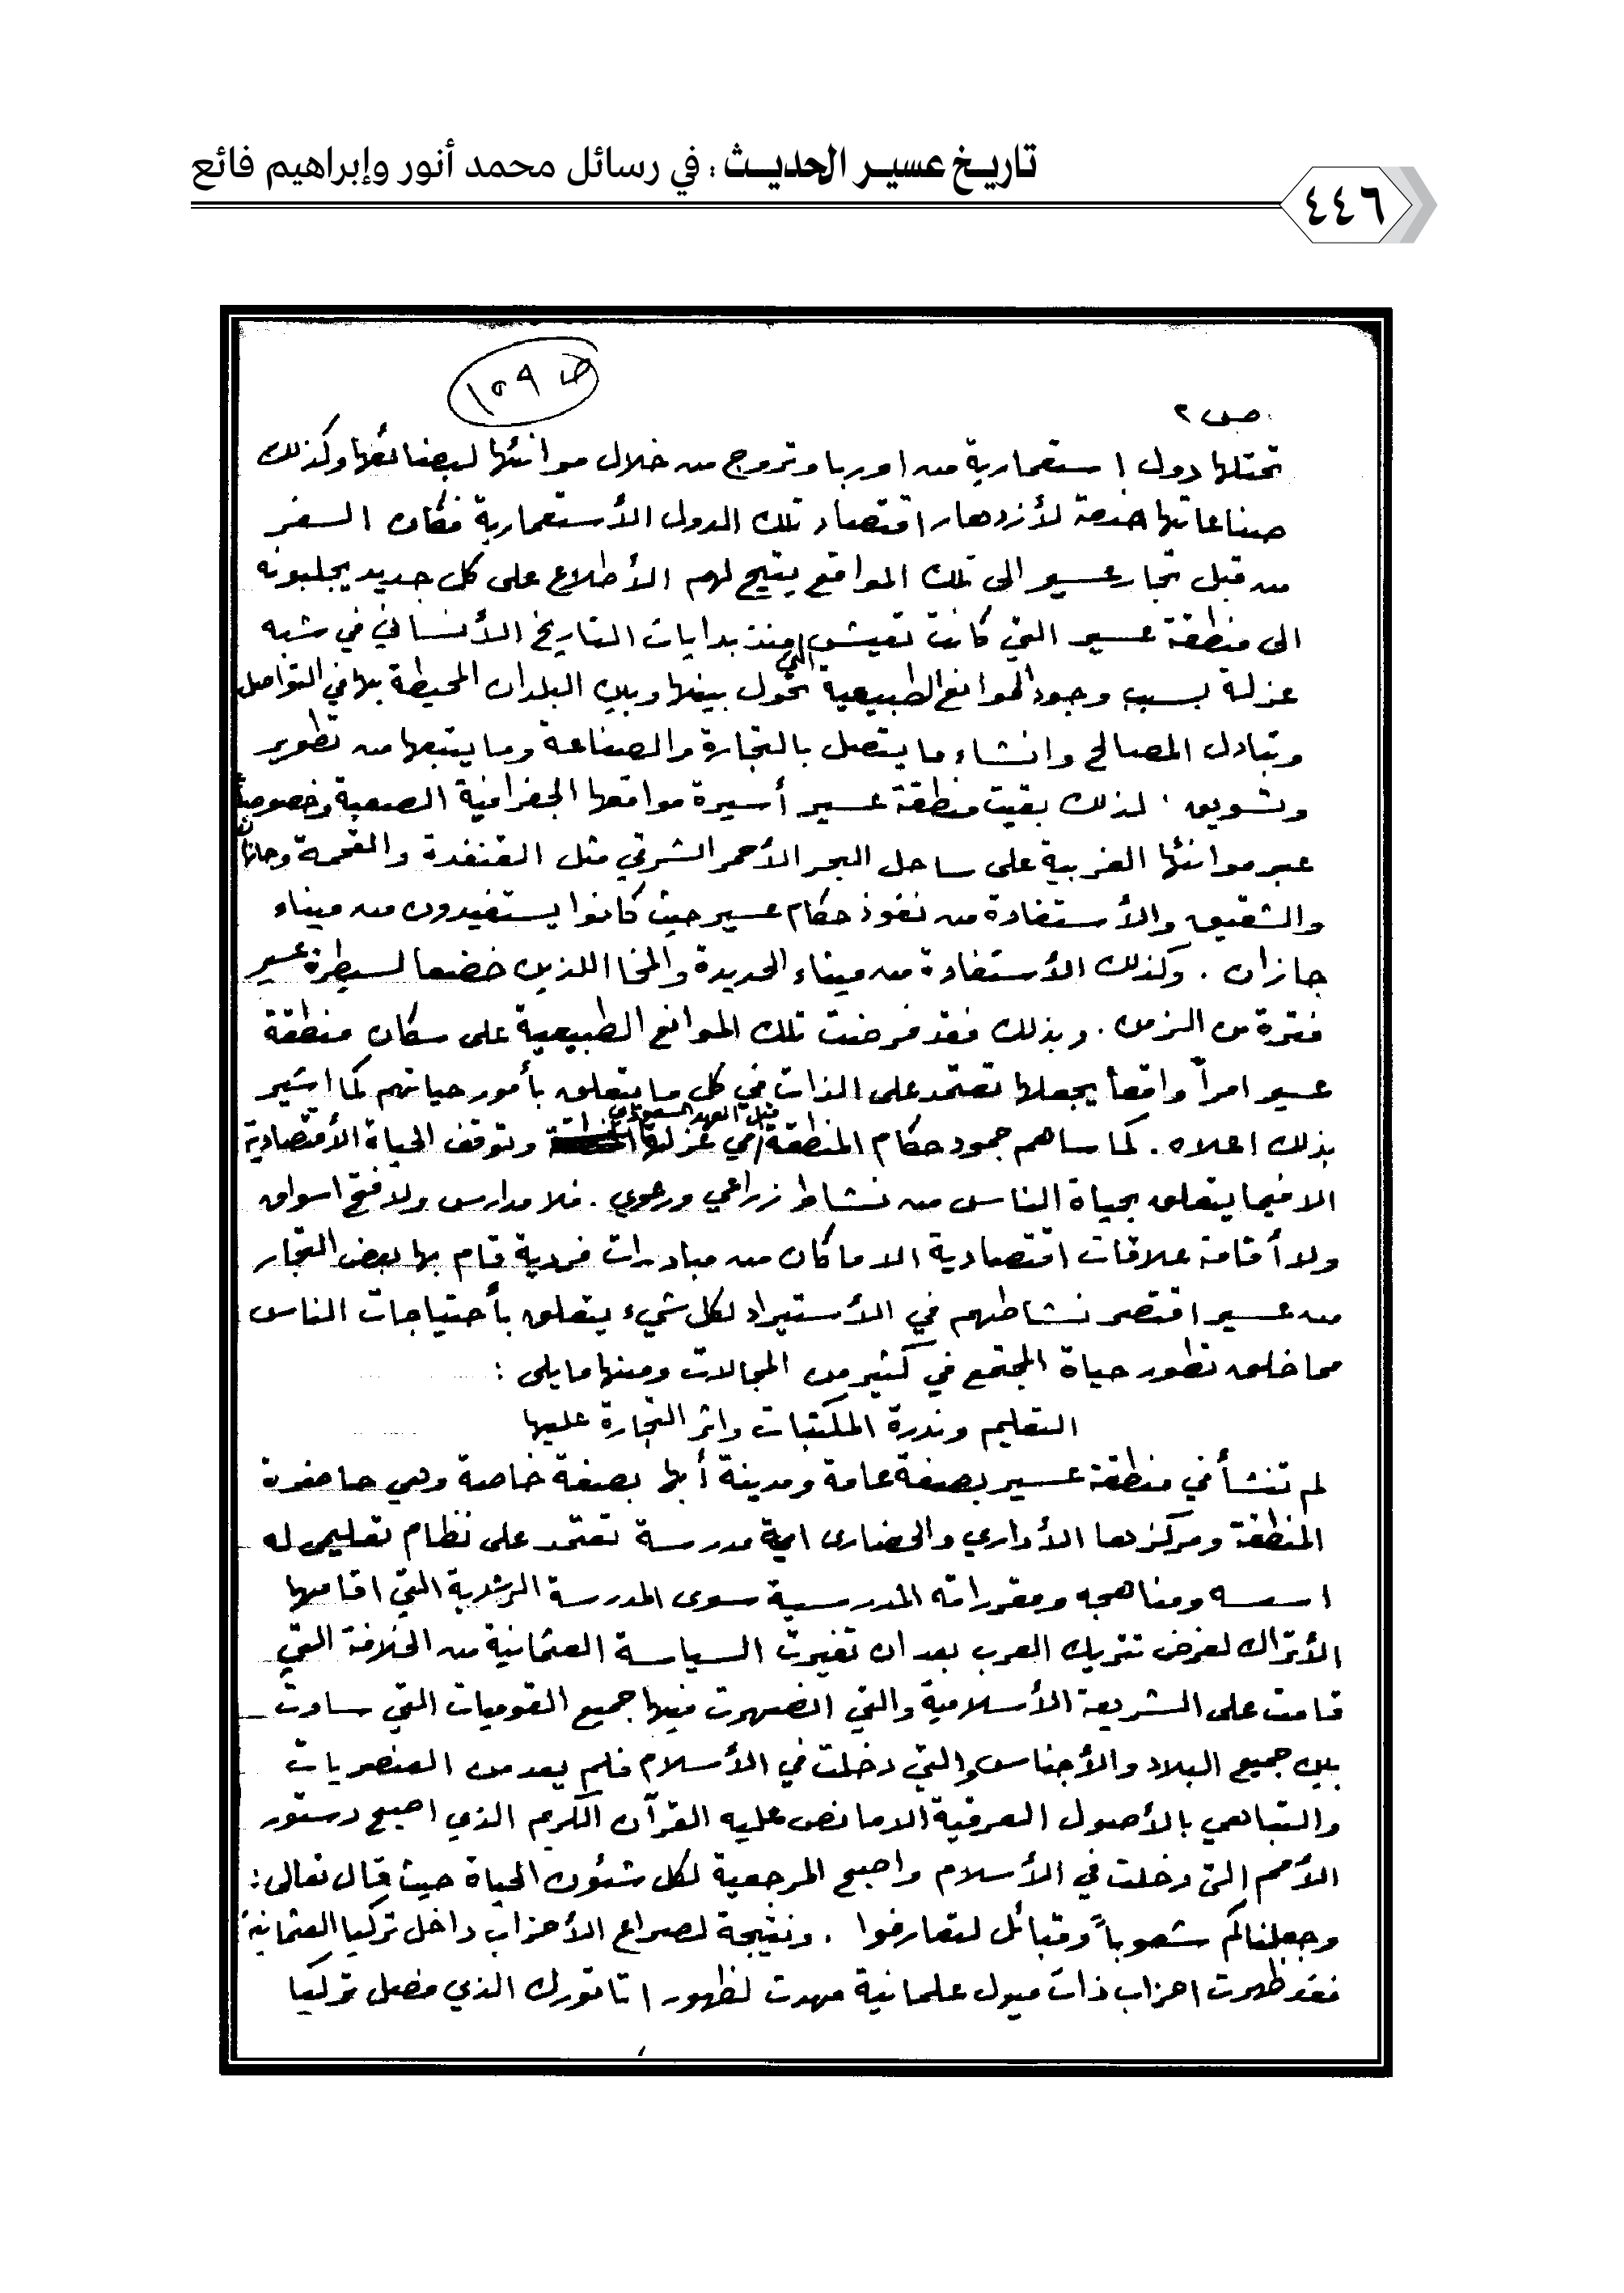 تاريخ عسير الحديث : في رسائل محمد أنور وإبراهيم فائع
٤٤٦
ص ١٥٩
ص ٢
تحتلها دول استعمارية من اوربا وتروج من خلال موانئها لبضائعها وكذلك
صناعاتها خدمة لأزدهار اقتصاد تلك الدول الأستعمارية فكان السفر
من قبل تجار عسير الى تلك المواقع يتيح لهم الأطلاع على كل جديد يجلبونه
الى منطقة عسير التي كانت تعيش منذ بدايات التاريخ الأنساني في شبه
عزلة بسبب وجود الموانع الطبيعية التي تحول بينها وبين البلدان المحيطة بها في التواصل
وتبادل المصالح وانشاء ما يتصل بالتجارة والصناعة وما يتبعها من تطوير
وتسويق . لذلك بقيت منطقة عسير أسيرة مواقعها الجغرافية الصعبة وخصوصاً
عبر موانئها الغربية على ساحل البحر الأحمر الشرقي مثل القنفدة والقحمة وجازان
والشقيق والأستفادة من نفوذ حكام عسير حيث كانوا يستفيدون من ميناء
جازان . وكذلك الأستفادة من ميناء الحديدة والمخا اللذين خضعا لسيطرة عسير
فترة من الزمن . وبذلك فقد فرضت تلك الموانع الطبيعية على سكان منطقة
عسير امراً واقعاً يجعلها تعتمد على الذات في كل ما يتعلق بأمور حياتهم كما اشير
بذلك اعلاه . كما ساهم جمود حكام المنطقة قبل العهد السعودي في عزلتها وتوقف الحياة الأقتصادية
الا فيما يتعلق بحياة الناس من نشاط زراعي ورعوي . فلا مدارس ولا فتح اسواق
ولا أقامة علاقات اقتصادية الا ما كان من مبادرات فردية قام بها بعض التجار
من عسير اقتصر نشاطهم في الأستيراد لكل شيء يتعلق بأحتياجات الناس
مما خلق تطور حياة المجتمع في كثير من المجالات ومنها ما يلي :
التعليم وندرة المكتبات واثر التجارة عليها
لم تنشأ في منطقة عسير بصفة عامة ومدينة أبها بصفة خاصة وهي حاضرة
المنطقة ومركزها الأداري والحضارى اية مدرسة تعتمد على نظام تعليمي له
اسسه ومناهجه ومقرراته المدرسية سوى المدرسة الرشدية التي اقامها
الأتراك لغرض تتريك العرب بعد ان تغيرت السياسة العثمانية من الخلافة التي
قامت على الشريعة الأسلامية والتي انصهرت فيها جميع القوميات التي ساوت
بين جميع البلاد والأجناس والتي دخلت في الأسلام فلم يعد من العنصريات
والتباهي بالأصول العرقية الا ما نص عليه القرآن الكريم الذي اصبح دستور
الأمم التي دخلت في الأسلام واصبح المرجعية لكل شئون الحياة حيث قال تعالى :
وجعلناكم شعوباً وقبائل لتعارفوا . ونتيجة لصراع الأحزاب داخل تركيا العثمانية
فقد ظهرت احزاب ذات ميول علمانية مهدت لظهور اتاتورك الذي فصل تركيا